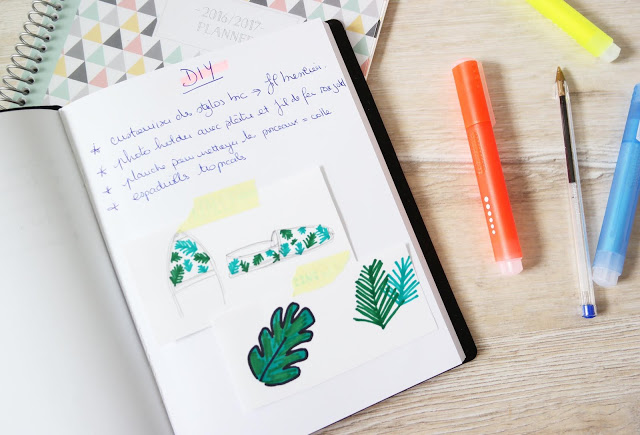 2016/2017
PLANNER
DIY
* customiser des stylos bic → fil
* photo holder avec plâtre et fil de fer
* planche pour nettoyer le pinceaux + colle
* espadrills tropicals